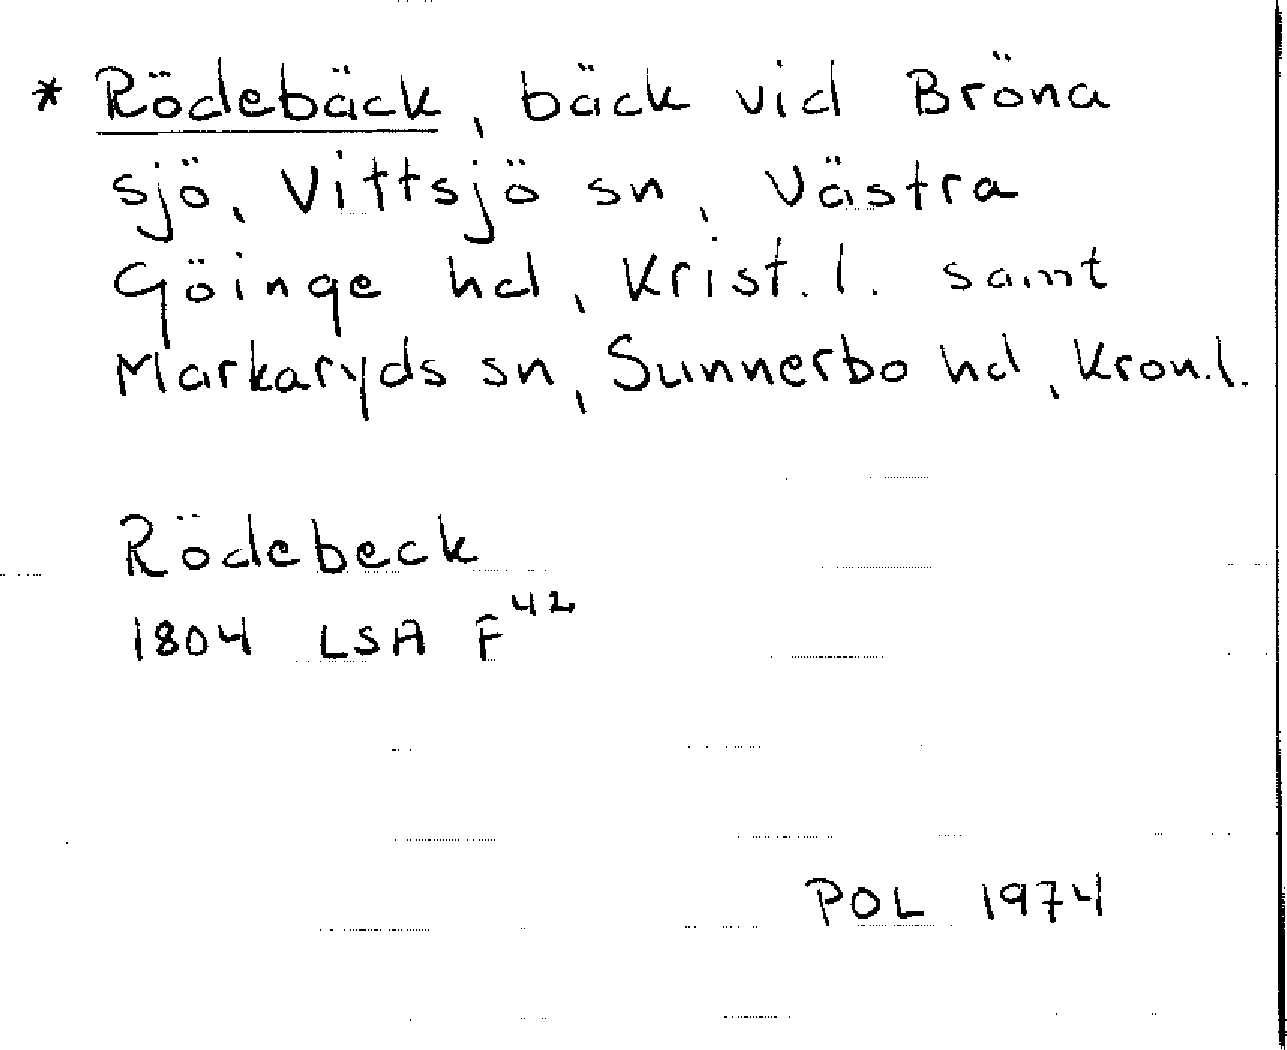 * Rödebäck, bäck vid Bröna
sjö, Vittsjö sn, Västra
Göinge hd, Krist. l. samt
Markaryds sn, Sunnerbo hd, Kron.l.
Rödebeck
1804 LSA F⁴²
POL 1974